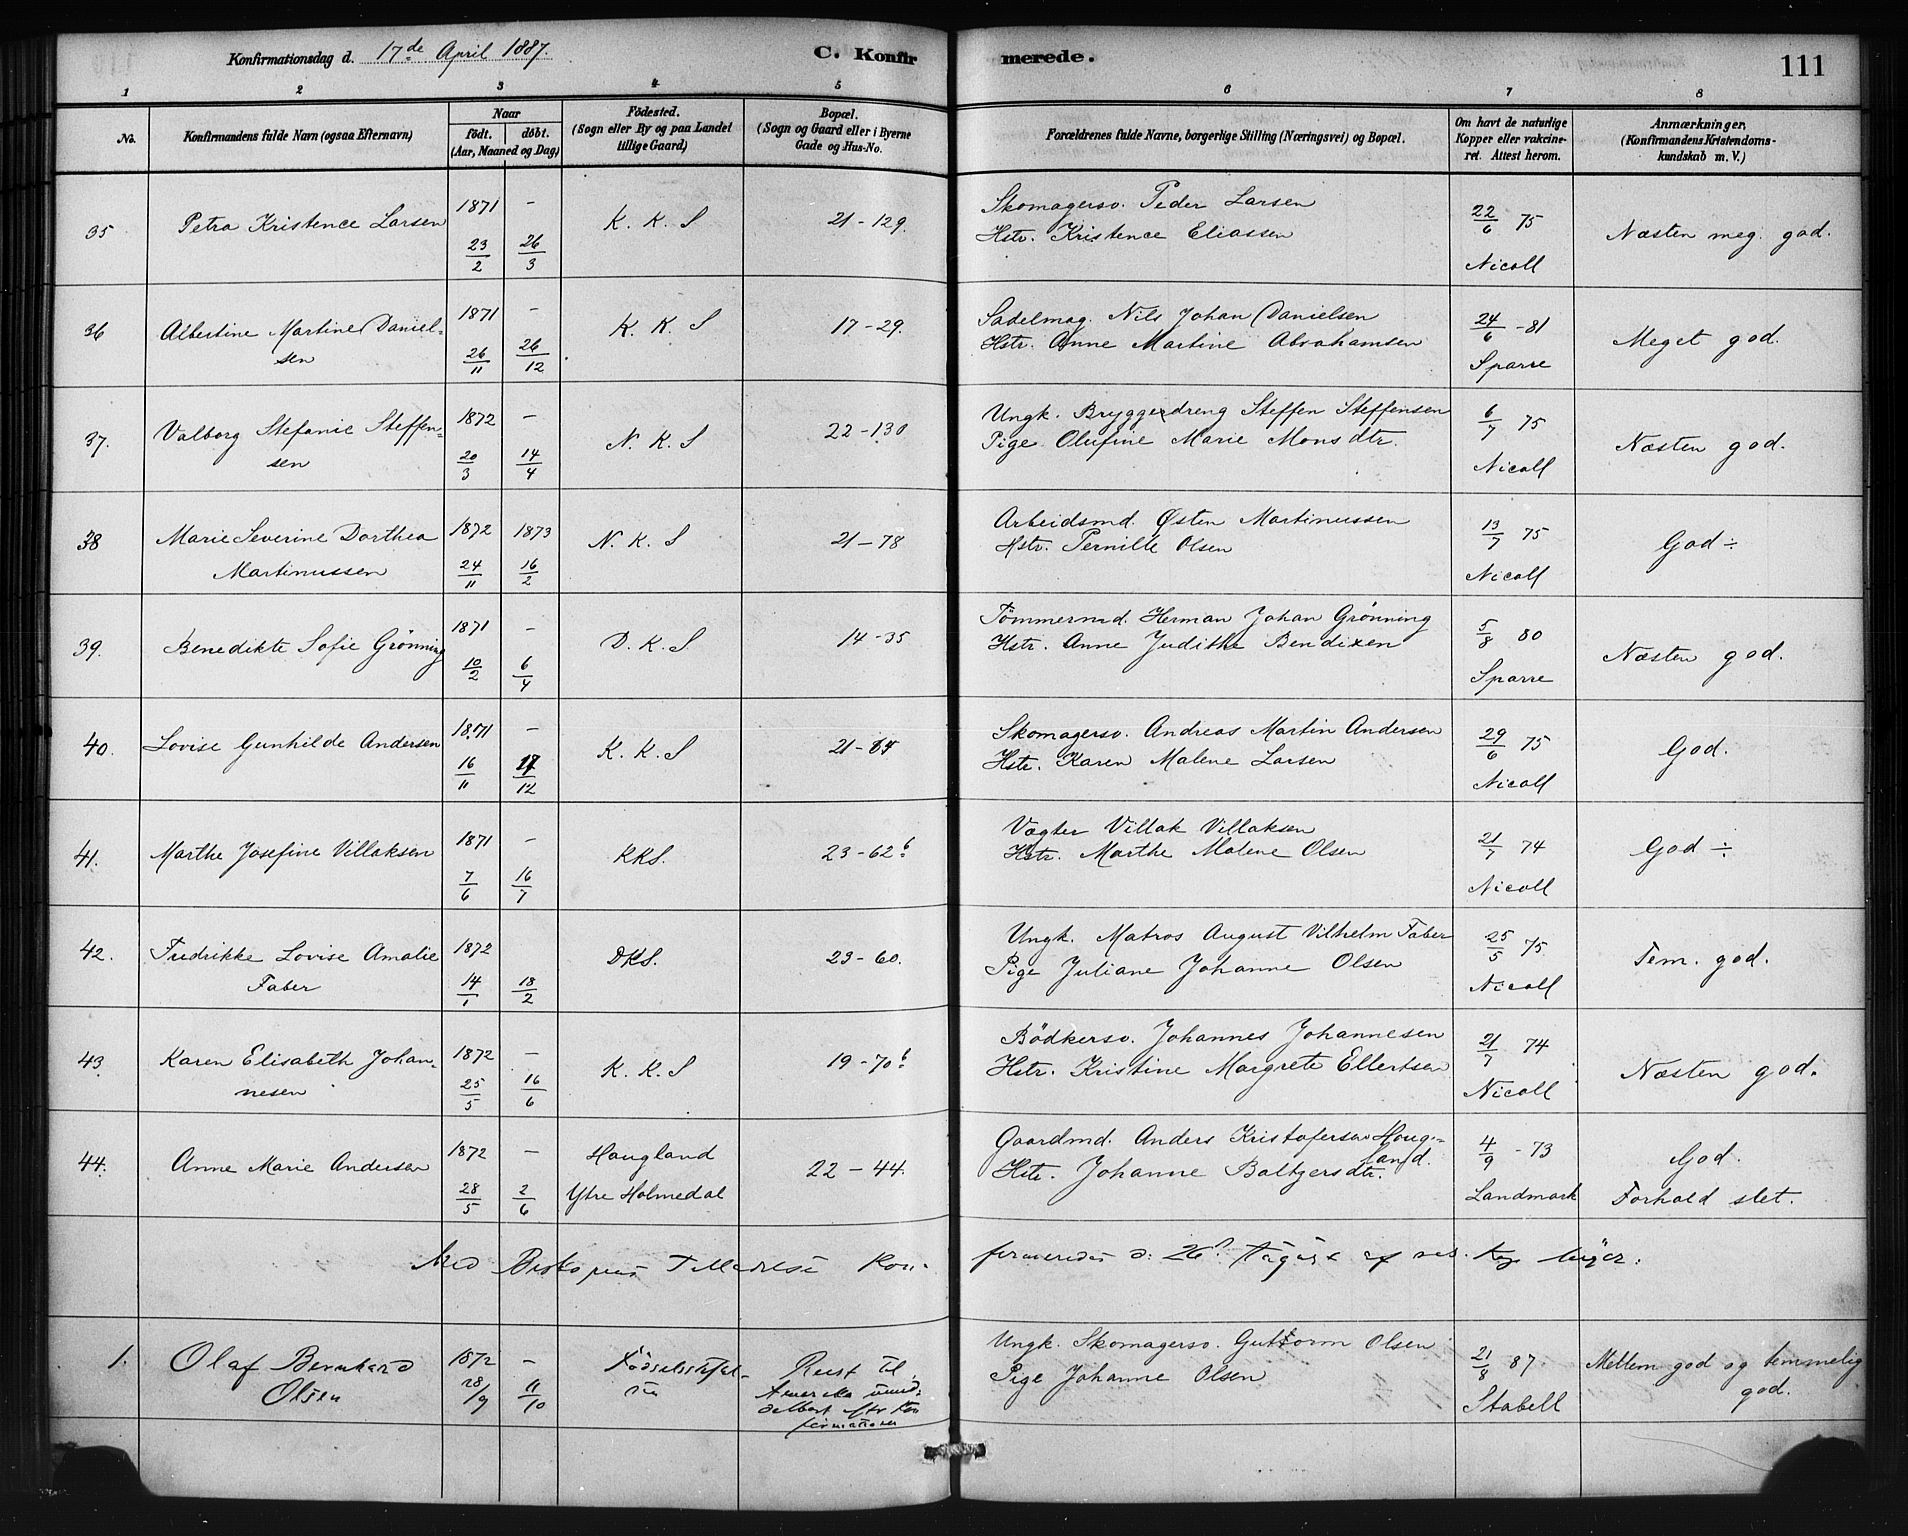 Konfirmationsdag d. 17de April 1887. C. Konfirmerede. 111
1 2 3 4 5 6 7 8
No. Konfirmandens fulde Navn (ogsaa Efternavn) Naar født. døbt. (Aar, Maaned og Dag) Fødested. (Sogn eller By og paa Landet tillige Gaard) Bopæl. (Sogn og Gaard eller i Byerne Gade og Hus-No. Forældrenes fulde Navne, borgerlige Stilling (Næringsvei) og Bopæl. Om havt de naturlige Kopper eller vakcineret. Attest herom. Anmærkninger, (Konfirmandens Kristendomskundskab m. V.)
35 Petra Kristence Larsen 1871 23/2 – 26/3 K. K. S 21-129. Skomagersv. Peder Larsen
Hstr. Kristence Eliassen 22/6 75 Nicoll Næsten meg. god.
36 Albertine Martine Daniel-
sen 1871 26/11 – 26/12 K. K. S 17-29. Sadelmag. Nils Johan Danielsen
Hstr. Anne Martine Abrahamsen 24/6 -81 Sparre Meget god.
37. Valborg Stefanie Steffen-
sen 1872 20/3 – 14/4 N. K. S 22-130 Ungk. Bryggerdreng Steffen Steffensen
Pige Olufine Marie Monsdtr. 6/7 75 Nicoll Næsten god.
38 Marie Severine Dorthea
Martinussen 1872 24/11 1873 16/2 N. K. S 21-78 Arbeidsmd. Østen Martinussen
Hstr. Pernille Olsen 13/7 75 Nicoll God ÷
39. Benedikte Sofie Grønning 1871 10/2 – 6/4 D. K. S 14-35 Tømmermd. Herman Johan Grønning
Hstr. Anne Judithe Bendixen 5/8 80 Sparre Næsten god.
40. Lovise Gunhilde Andersen 1871 16/11 – 17/12 K. K. S 21-84 Skomagersv. Andreas Martin Andersen
Hstr. Karen Malene Larsen 29/6 75 Nicoll God.
41. Marthe Josefine Villaksen 1871 7/6 – 16/7 KKS. 23-62b. Vægter Villak Villaksen
Hstr. Marthe Malene Olsen 21/7 74 Nicoll God ÷
42. Fredrikke Lovise Amalie
Faber 1872 14/1 18/2 DKS. 23-60. Ungk. Matros August Vilhelm Faber
Pige Juliane Johanne Olsen 25/5 75. Nicoll Tem. god.
43. Karen Elisabeth Johan-
nesen 1872 25/5 – 16/6 K. K. S 19-70b. Bødkersv. Johannes Johannesen
Hstr. Kristine Margrete Ellertsen 21/7 74 Nicoll Næsten god.
44. Anne Marie Andersen 1872 28/5 – 2/6 Haugland
Ytre Holmedal 22-44. Gaardmd. Anders Kristofersen Haug-
land.
Hstr. Johanne Baltzersdtr. 4/9 -73 Landmark God.
Forhold slet.
Med Biskopens Tilladelse kon-
firmeredes d: 26d August af res. Kap.
1. Olaf Bernhard
Olsen 1872 28/9 – 11/10 Fødselsstiftel-
sen Reist til
Amerika umid-
delbart eftr Kon
firmationen Ungk. Skomagersv. Guttorm Olsen
Pige Johanne Olsen 21/8 87. Stabell Mellem god og temmelig
god.